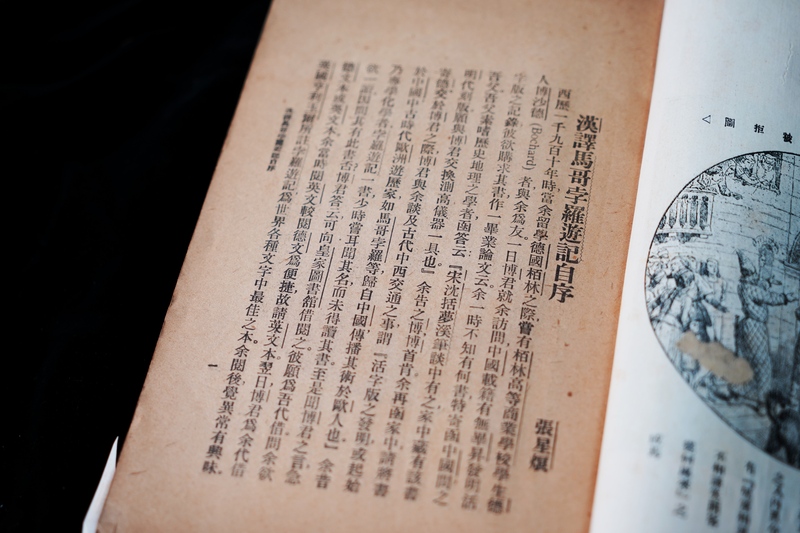 漢譯馬哥孛羅遊記自序
張星烺
西歷一千九百十年時當余留學德國柏林之際嘗有柏林高等商業學校學生德
人博沙德(Bochard)者與余爲友一日博君就余訪問中國載籍有無畢昇發明活
字版之記錄彼欲購求其書作一畢業論文云余一時不知有何書特寄函中國問之
吾父吾父素嗜歷史地理之學者函答云『宋沈括夢溪筆談中有之家中藏有該書
明代刻版願與博君交換測高儀器一具也』余告之博博首肯余再函家中請將書
寄德交於博君之際博君與余談及古代中西交通之事謂『活字版之發明或起始
於中國中古時代歐洲遊歷家如馬哥孛羅等歸自中國傳播其術於歐人也』余昔
乃專學化學者孛羅遊記一書少時嘗耳聞其名而未得讀其書至是聞博君之言急
欲一讀因問其有此書否博君答云可向皇家圖書館借閱之彼願爲吾代借問余欲
德文本或英文本余當時閱英文較閱德文爲便捷故請英文本翌日博君爲余代借
英國亨利玉爾所註孛羅遊記爲世界各種文字中最佳之本余閱後覺異常有興味
一